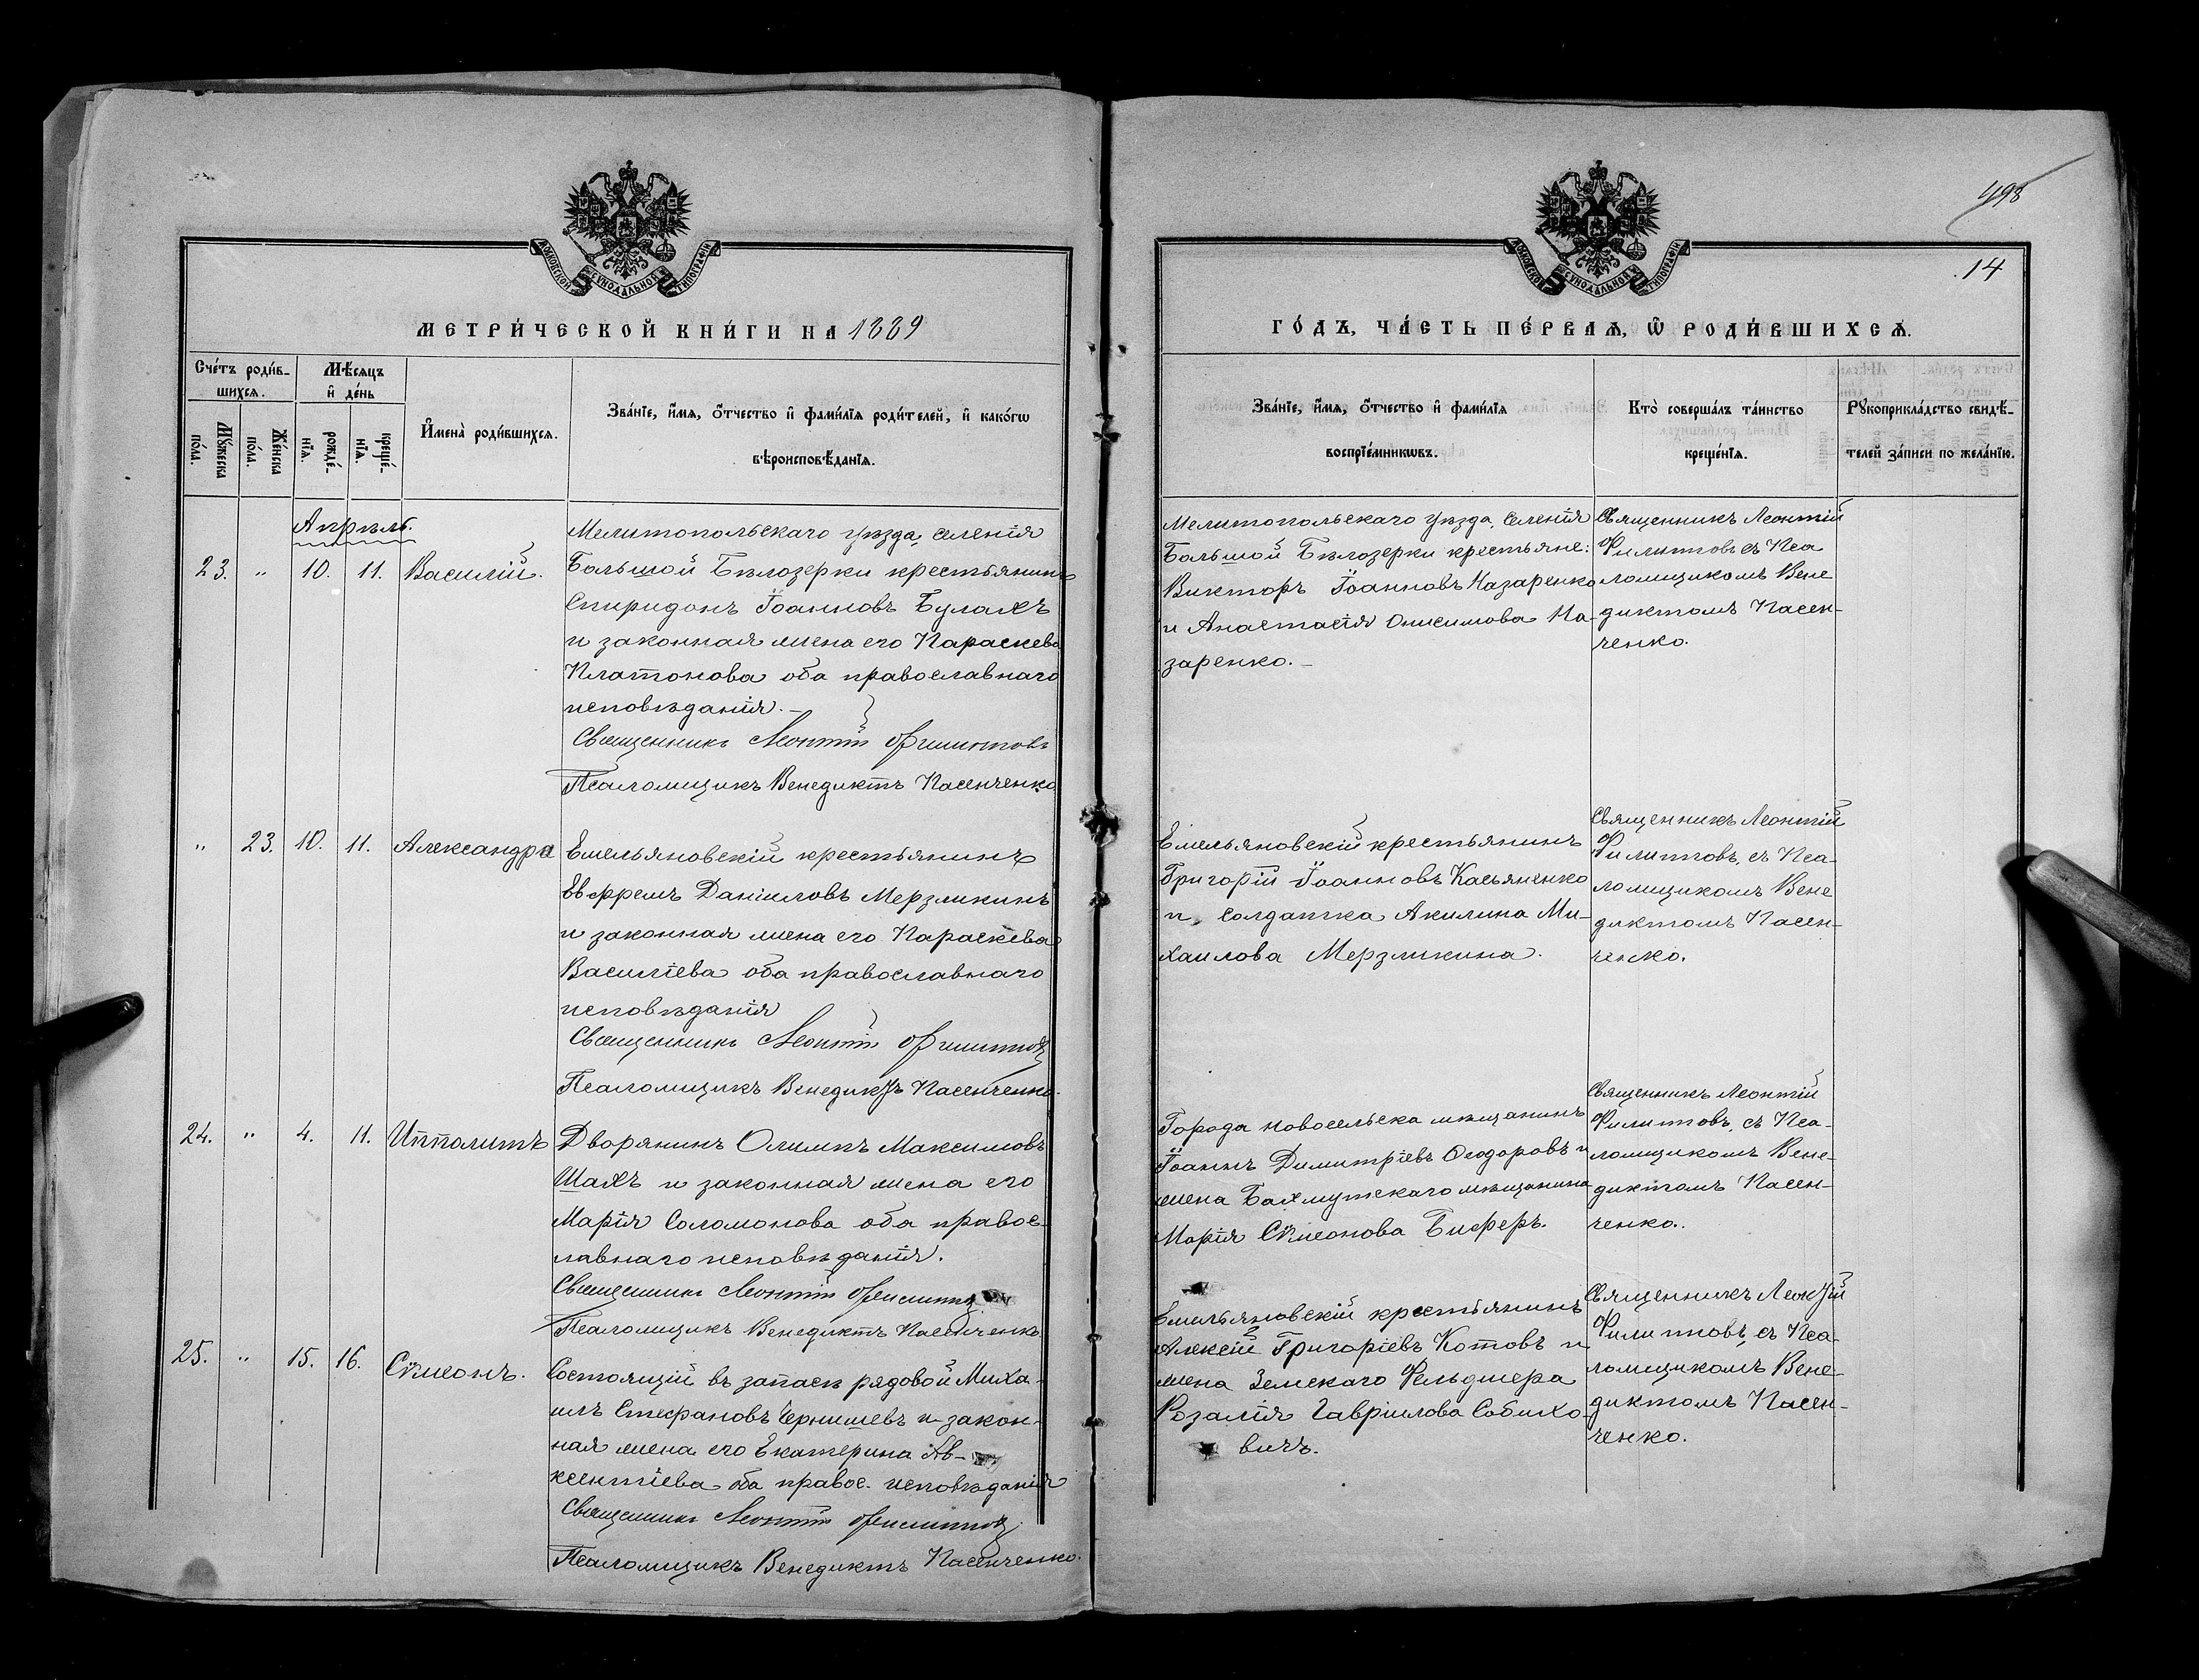 МОСКОВСКОЙ СѴНОДАЛЬНОЙ ТИПОГРАФІИ
МЕТРИ́ЧЕСКОЙ КНИ́ГИ НА 1889
Сче́тъ роди́в-
шихсѧ.
Мѣ́сѧцъ
и҆ де́нь
Мꙋ́жеска
по́ла.
Же́нска
по́ла.
рожде́-
нїѧ.
креще́-
нїѧ.
И҆мена̀ роди́вшихсѧ.
Зва́нїе, и҆́мѧ, ѻ҆́тчество и҆ фами́лїѧ роди́телей, и҆ како́гѡ
вѣроисповѣ́данїѧ.
Апрѣль.
23. „ 10. 11. Василій.
Мелитопольскаго уѣзда, селенія
Большой Бѣлозерки крестьянинъ
Спиридонъ Іоанновъ Булахъ
и законная жена его Параскева
Платонова оба православнаго
исповѣданія.—
Священникъ Леонтій Филипповъ
Псаломщикъ Венедиктъ Пасенченко
„ 23. 10. 11. Александра
Емельяновскій крестьянинъ
Евфремъ Даніиловъ Мерзликинъ
и законная жена его Параскева
Василіева оба православнаго
исповѣданія
Священникъ Леонтій Филипповъ
Псаломщикъ Венедиктъ Пасенченко.
24. „ 4. 11. Ипполитъ
Дворянинъ Олимпъ Максимовъ
Шахъ и законная жена его
Марія Соломонова оба правос-
лавнаго исповѣданія.
Священникъ Леонтій Филипповъ
Псаломщикъ Венедиктъ Пасенченко
25. „ 15. 16. Сѵмеонъ.
Состоящій въ запасѣ рядовой Миха-
илъ Стефановъ Чернышевъ и закон-
ная жена его Екатерина Ав-
ксентіева оба правос. исповѣданія
Священникъ Леонтій Филипповъ
Псаломщикъ Венедиктъ Пасенченко.
498
14
МОСКОВСКОЙ СѴНОДАЛЬНОЙ ТИПОГРАФІИ
ГО́ДЪ, ЧА́СТЬ ПЕ́РВАѦ, Ѡ҆ РОДИ́ВШИХСѦ.
Зва́нїе, и҆́мѧ, ѻ҆́тчество и҆ фами́лїѧ
воспрїе́мникѡвъ.
Кто̀ соверша́лъ та́инство
креще́нїѧ.
Рꙋкоприкла́дство свидѣ́-
телей за́писи по жела́нїю.
Мелитопольскаго уѣзда, селенія
Большой Бѣлозерки крестьяне:
Викторъ Іоанновъ Назаренко
и Анастасія Онисимова На-
заренко.—
Священникъ Леонтій
Филипповъ съ Пса
ломщикомъ Вене
диктомъ Пасен-
ченко.
Емельяновскій крестьянинъ
Григорій Іоанновъ Касьяненко
и солдатка Акилина Ми-
хаилова Мерзликина.
Священникъ Леонтій
Филипповъ, съ Пса-
ломщикомъ Вене
диктомъ Пасен-
ченко.
Города Новосельска мѣщанинъ
Іоаннъ Димитріевъ Ѳеодоровъ и
жена Бахмутскаго мѣщанина
Марія Сѵмеонова Биферъ.
Священникъ Леонтій
Филипповъ, съ Пса-
ломщикомъ Вене-
диктомъ Пасен-
ченко.
Емельяновскій крестьянинъ
Алексій Григоріевъ Котовъ и
жена Земскаго Фельдшера
Розалія Гавріилова Собихо-
вичъ.
Священникъ Леонтій
Филипповъ, съ Пса-
ломщикомъ Вене-
диктомъ Пасен-
ченко.